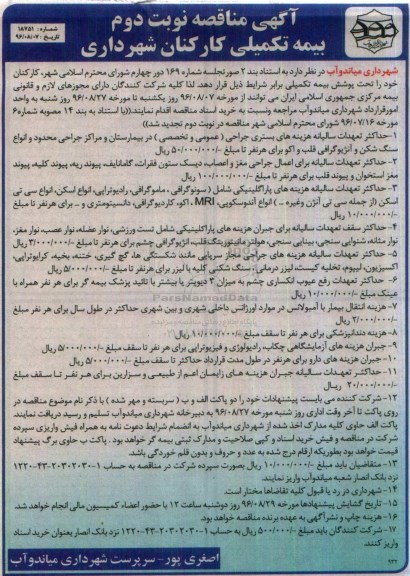 آگهی مناقصه نوبت دوم
بیمه تکمیلی کارکنان شهرداری
شماره: ۱۸۷۵۱
تاریخ: ۹۶/۰۸/۰۷
شهرداری میاندوآب در نظر دارد به استناد بند ۲ صورتجلسه شماره ۱۶۹ دور چهارم شورای محترم اسلامی شهر، کارکنان
خود را تحت پوشش بیمه تکمیلی برابر شرایط ذیل قرار دهد. لذا کلیه شرکت کنندگان دارای مجوزهای لازم و قانونی
بیمه مرکزی جمهوری اسلامی ایران می توانند از مورخه ۹۶/۰۸/۰۷ روز یکشنبه تا مورخه ۹۶/۰۸/۲۷ روز شنبه به واحد
امور قرارداد شهرداری میاندوآب مراجعه ونسبت به خرید اسناد مناقصه اقدام نمایند.((با استناد به بند ۱۴ مصوبه شماره۶
مورخه ۹۶/۰۷/۱۶ شورای محترم اسلامی شهر مناقصه در نوبت دوم تجدید شد))
۱-حداکثر تعهدات سالیانه هزینه های بستری جراحی ( عمومی و تخصصی ) در بیمارستان و مراکز جراحی محدود و انواع
سنگ شکن و آنژیوگرافی قلب و اکو برای هرنفر تا مبلغ ۵۰/۰۰۰/۰۰۰/- ریال
۲-حداکثر تعهدات سالیانه برای اعمال جراحی مغز و اعصاب، دیسک ستون فقرات، گامانایف، پیوند ریه، پیوند کلیه، پیوند
مغز استخوان و پیوند قلب برای هرنفر تا مبلغ ۱۰۰/۰۰۰/۰۰۰/- ریال
۳-حداکثر تعهدات سالیانه هزینه های پاراکلینیکی شامل ( سونوگرافی ، ماموگرافی، رادیوتراپی، انواع اسکن، انواع سی تی
اسکن (از جمله سی تی آنژن وغیره ... ) انواع آندوسکوپی، MRI ، اکو، کاردیوگرافی، دانسیتومتری و ... برای هرنفر تا مبلغ
۱۰/۰۰۰/۰۰۰/- ریال
۴-حداکثر سقف تعهدات سالیانه برای جبران هزینه های پاراکلینیکی شامل تست ورزشی، نوار عضله، نوار عصب، نوار مغز،
نوار مثانه، شنوایی سنجی، بینایی سنجی، هولتر مانیتورینگ قلب، آنژیوگرافی چشم برای هرنفر تا مبلغ ۳/۰۰۰/۰۰۰/- ریال
۵-حداکثر تعهدات سالیانه هزینه های جراحی مجاز سرپایی مانند شکستگی ها، گچ گیری، ختنه، بخیه، کرایوتراپی،
اکسیزیون، لیپوم، تخلیه کیست، لیزر درمانی، سنگ شکنی کلیه با لیزر برای هرنفر تا سقف ۵/۰۰۰/۰۰۰/- ریال
۶-حداکثر تعهدات رفع عیوب انکساری چشم به میزان ۳ دیوپتر یا بیشتر با تائید پزشک بیمه گر برای هر نفر همراه با
عینک مبلغ ۱۰/۰۰۰/۰۰۰/- ریال
۷- هزینه انتقال بیمار با آمبولانس در موارد اورژانس داخلی شهری و بین شهری حداکثر در طول سال برای هر نفر مبلغ
۲/۰۰۰/۰۰۰/- ریال
۸- هزینه دندانپزشکی برای هر نفر تا سقف مبلغ ۱۰/۰۰۰/۰۰۰/- ریال
۹- جبران هزینه های آزمایشگاهی چکاب، رادیولوژی و فیزیوتراپی برای هر نفر تا سقف مبلغ ۵/۰۰۰/۰۰۰/- ریال
۱۰- جبران هزینه های دارو برای هرنفر در طول مدت قرارداد حداکثر تا سقف مبلغ ۵/۰۰۰/۰۰۰/- ریال
۱۱- حداکثر تعهدات سالیانه جبران هزینه های زایمان اعم از طبیعی و سزارین برای هر نفر تا سقف مبلغ
۲۰/۰۰۰/۰۰۰/- ریال
۱۲- شرکت کننده می بایست پیشنهادات خود را دو پاکت الف و ب ( سربسته و مهر شده ) با ذکر نام موضوع مناقصه در
روی پاکت تا آخر وقت اداری روز شنبه مورخه ۹۶/۰۸/۲۷ به دبیرخانه شهرداری میاندوآب تسلیم و رسید دریافت نمایند.
پاکت الف حاوی کلیه مدارک اخذ شده از شهرداری میاندوآب به انضمام شرایط دعوت نامه به همراه فیش واریزی سپرده
شرکت در مناقصه و فیش خرید اسناد و کپی صلاحیت و مدارک ثبتی بیمه گر خواهد بود . پاکت ب حاوی برگ پیشنهاد
قیمت خواهد بود بطوریکه ارقام درج شده به عدد و حروف و بدون قلم خوردگی باشد.
۱۳- متقاضیان باید مبلغ ۱۰/۰۰۰/۰۰۰/- ریال بصورت سپرده شرکت در مناقصه به حساب ۱-۲۰۳۰۲۰۳-۴۳-۱۲۲۰
نزد بانک انصار شعبه میاندوآب واریز نمایند.
۱۴-شهرداری در رد یا قبول کلیه تقاضاها مختار است.
۱۵- تاریخ گشایش پیشنهادها مورخه ۹۶/۰۸/۲۹ روز دوشنبه ساعت ۱۲ با حضور اعضاء کمیسیون مالی انجام خواهد شد.
۱۶- هزینه چاپ و نشر آگهی به عهده برنده مناقصه خواهد بود.
۱۷- شرکت کنندگان باید مبلغ ۵۰۰/۰۰۰/- ریال به حساب ۱-۲۰۳۰۲۰۳-۴۳-۱۲۲۰ نزد بانک انصار بعنوان خرید اسناد
واریز کنند.
اصغری پور- سرپرست شهرداری میاندوآب
۹۲۲
ParsNamadData